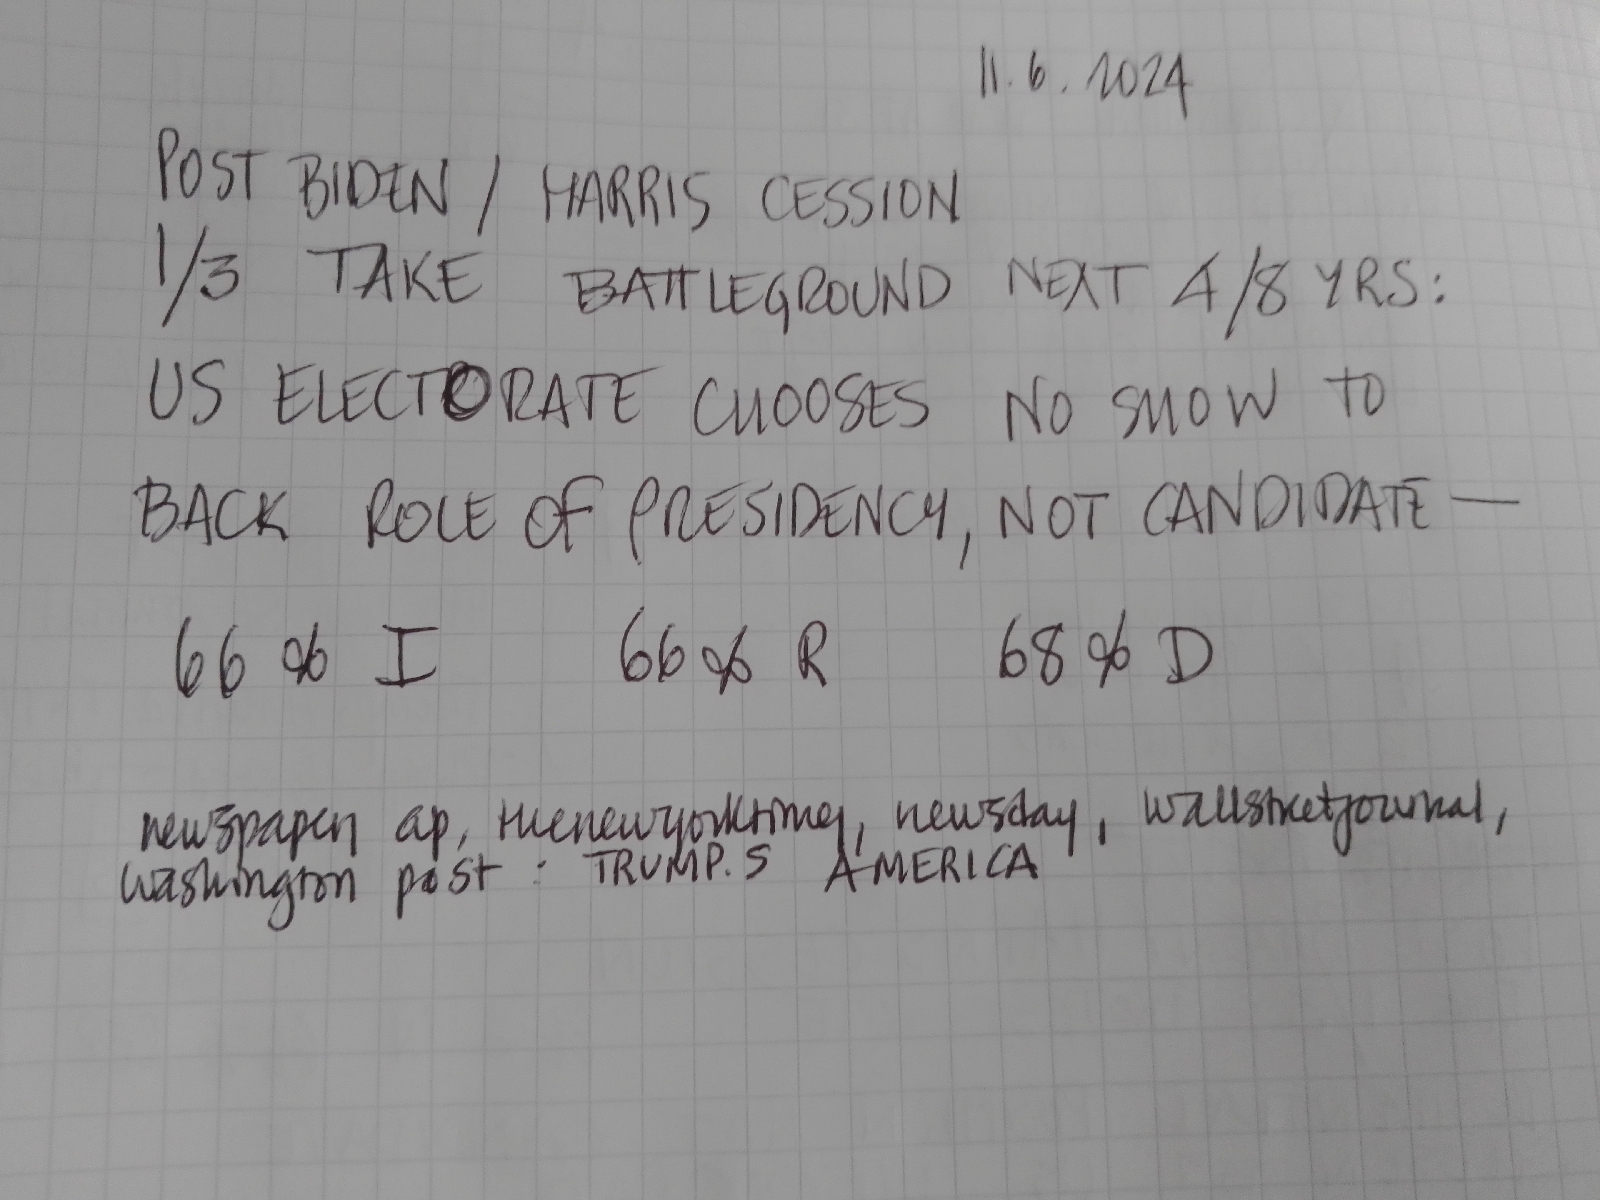 11.6.2024
POST BIDEN / HARRIS CESSION
1/3 TAKE BATTLEGROUND NEXT 4/8 YRS:
US ELECTORATE CHOOSES NO SHOW TO
BACK ROLE OF PRESIDENCY, NOT CANDIDATE —
66% I 66% R 68% D
newspaper ap, thenewyorktimes, newsday, wallstreetjournal,
washington post : TRUMP.S AMERICA